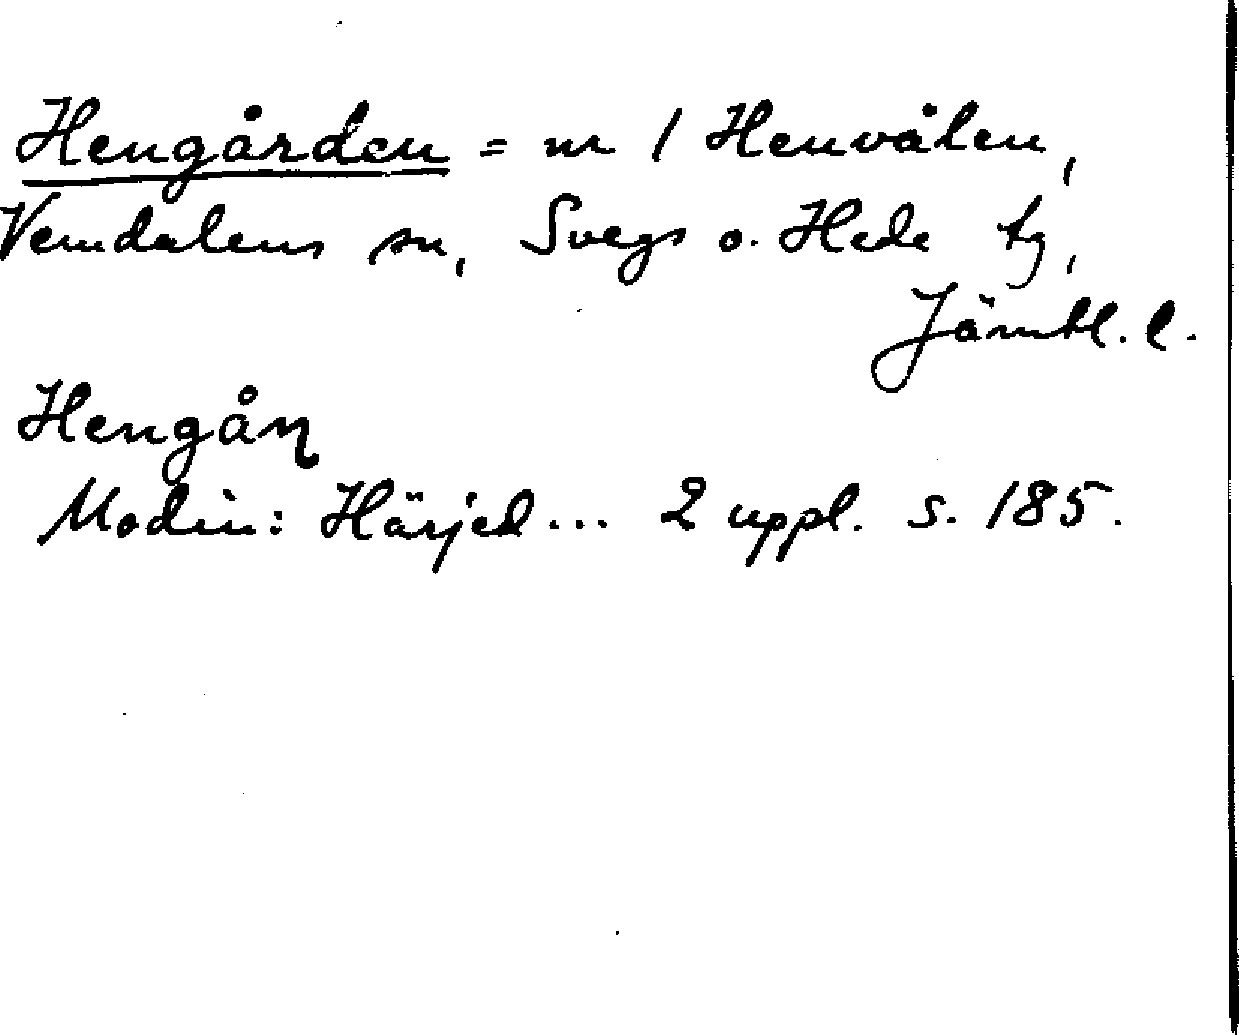 Hengården = nr 1 Henvålen,
Vemdalens sn, Svegs o. Hede tg,
Jämtl. l.
Hengåɳ
Modin: Härjed... 2 uppl. s. 185.